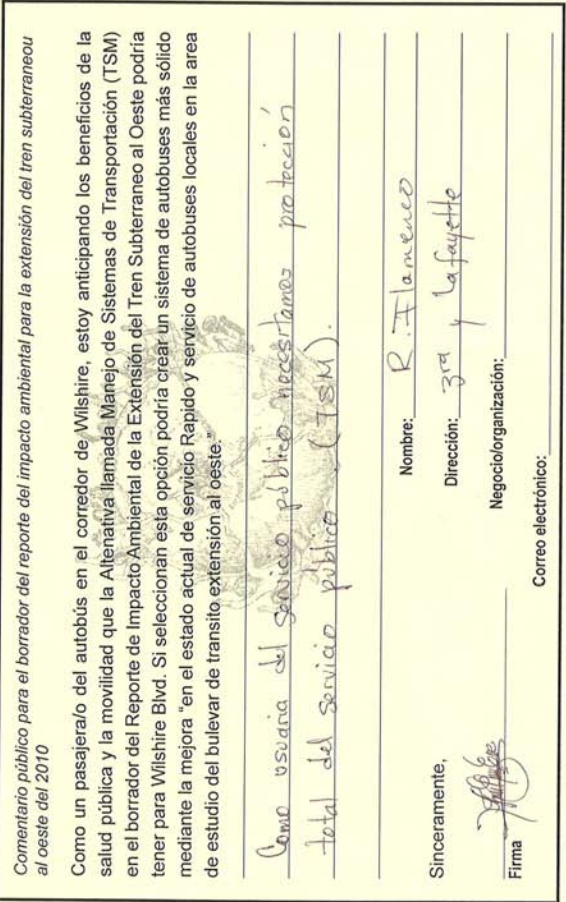 Comentario público para el borrador del reporte del impacto ambiental para la extensión del tren subterraneou
al oeste del 2010
Como un pasajera/o del autobús en el corredor de Wilshire, estoy anticipando los beneficios de la
salud pública y la movilidad que la Altenativa llamada Manejo de Sistemas de Transportación (TSM)
en el borrador del Reporte de Impacto Ambiental de la Extensión del Tren Subterraneo al Oeste podría
tener para Wilshire Blvd. Si seleccionan esta opción podría crear un sistema de autobuses más sólido
mediante la mejora "en el estado actual de servicio Rapido y servicio de autobuses locales en la area
de estudio del bulevar de transito extensión al oeste."
Como usuaria del servicio público necesitamos protección
total del servicio público (TSM).
Sinceramente,
Firma
Nombre: R. Flamenco
Dirección: 3ra y Lafayette
Negocio/organización:
Correo electrónico: